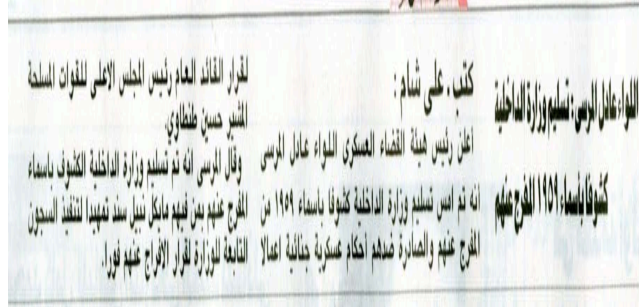 اللواء عادل المرسى : تسليم وزارة الداخلية
كشوفا بأسماء ١٩٥٩ المفرج عنهم
كتب ـ على شام :
أعلن رئيس هيئة القضاء العسكرى اللواء عادل المرسى
انه تم امس تسليم وزارة الداخلية كشوفا باسماء ١٩٥٩ من
المفرج عنهم والصادرة ضدهم أحكام عسكرية جنائية اعمالا
لقرار القائد العام رئيس المجلس الاعلى للقوات المسلحة
المشير حسين طنطاوى.
وقال المرسى انه تم تسليم وزارة الداخلية الكشوف باسماء
المفرج عنهم بمن فيهم مايكل نبيل سند تمهيدا لتنفيذ السجون
التابعة للوزارة لقرار الافراج عنهم فورا.